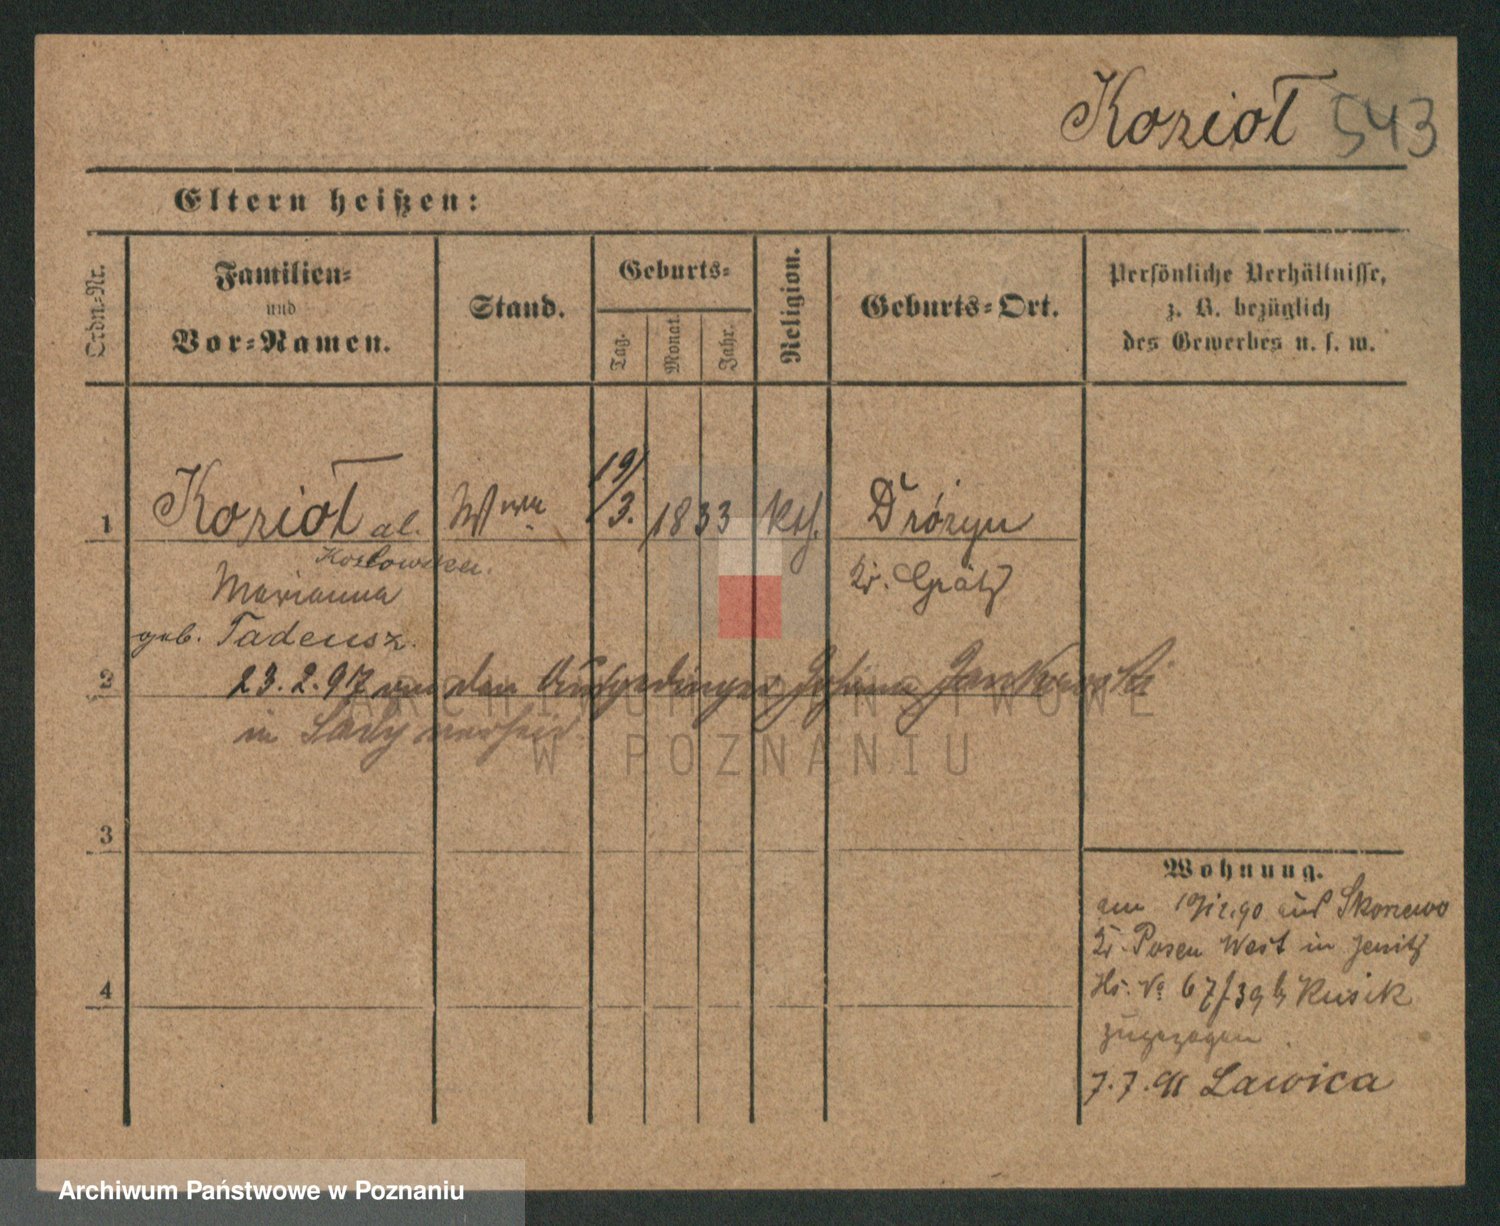 Kozioł 543
Eltern heißen:
Ordn.-Nr.
Familien-
und
Vor-Namen.
Stand.
Geburts-
Tag.
Monat.
Jahr.
Religion.
Geburts-Ort.
Persönliche Verhältnisse,
z. B. bezüglich
des Gewerbes u. s. w.
1 Kozioł al. Wwe 19/3. 1833 kth. Dróżyn
Koslowska.
Marianna Kr. Grätz
geb. Tadeusz.
2 23.2.97 den Johann Jankowski
in verheir.
ARCHIWUM PAŃSTWOWE
W POZNANIU
3
4
Wohnung.
am aus Skorzewo
Kr. Posen West in Jersitz
Hs. No 67/39 b Rusik
zugezogen
7.7.91 Lawica
Archiwum Państwowe w Poznaniu